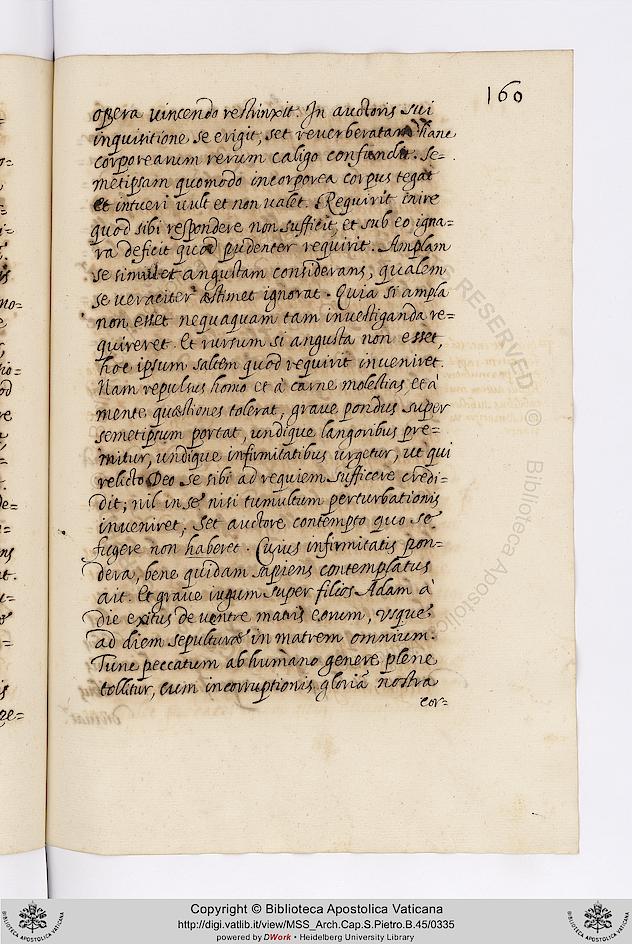 160
opera vincendo restrinxit. In auctoris sui
inquisitione se erigit, set reverberatam hanc
corporearum rerum caligo confundit. Se-
metipsam quomodo incorporea corpus tegat
et intueri vult et non valet. Requirit mire
quod sibi respondere non sufficit, et sub eo igna-
ra deficit quod prudenter requirit. Amplam
se simul et angustam considerans, qualem
se veraciter æstimet ignorat. Quia si ampla
non esset nequaquam tam investiganda re-
quireret. Et rursum si angusta non esset,
hoc ipsum saltem quod requirit inveniret.
Nam repulsus homo et à carne molestias et à
mente quæstiones tolerat, grave pondus super
semetipsum portat, undique langoribus pre-
mitur, undique infirmitatibus urgetur, ut qui
relicto Deo se sibi ad requiem sufficere credi-
dit; nil in se nisi tumultum perturbationis
inveniret, Set auctore contempto quo se
fugere non haberet. Cuius infirmitatis pon-
dera, bene quidam sapiens contemplatus
ait. Et grave iugum super filios Adam à
die exitus de ventre matris eorum, usque
ad diem sepulturæ in matrem omnium.
Tunc peccatum ab humano genere plene
tollitur, cum incorruptionis gloriā nostra
cor-
RESERVED © Biblioteca Apostolica
Copyright © Biblioteca Apostolica Vaticana
http://digi.vatlib.it/view/MSS_Arch.Cap.S.Pietro.B.45/0335
powered by DWork • Heidelberg University Library